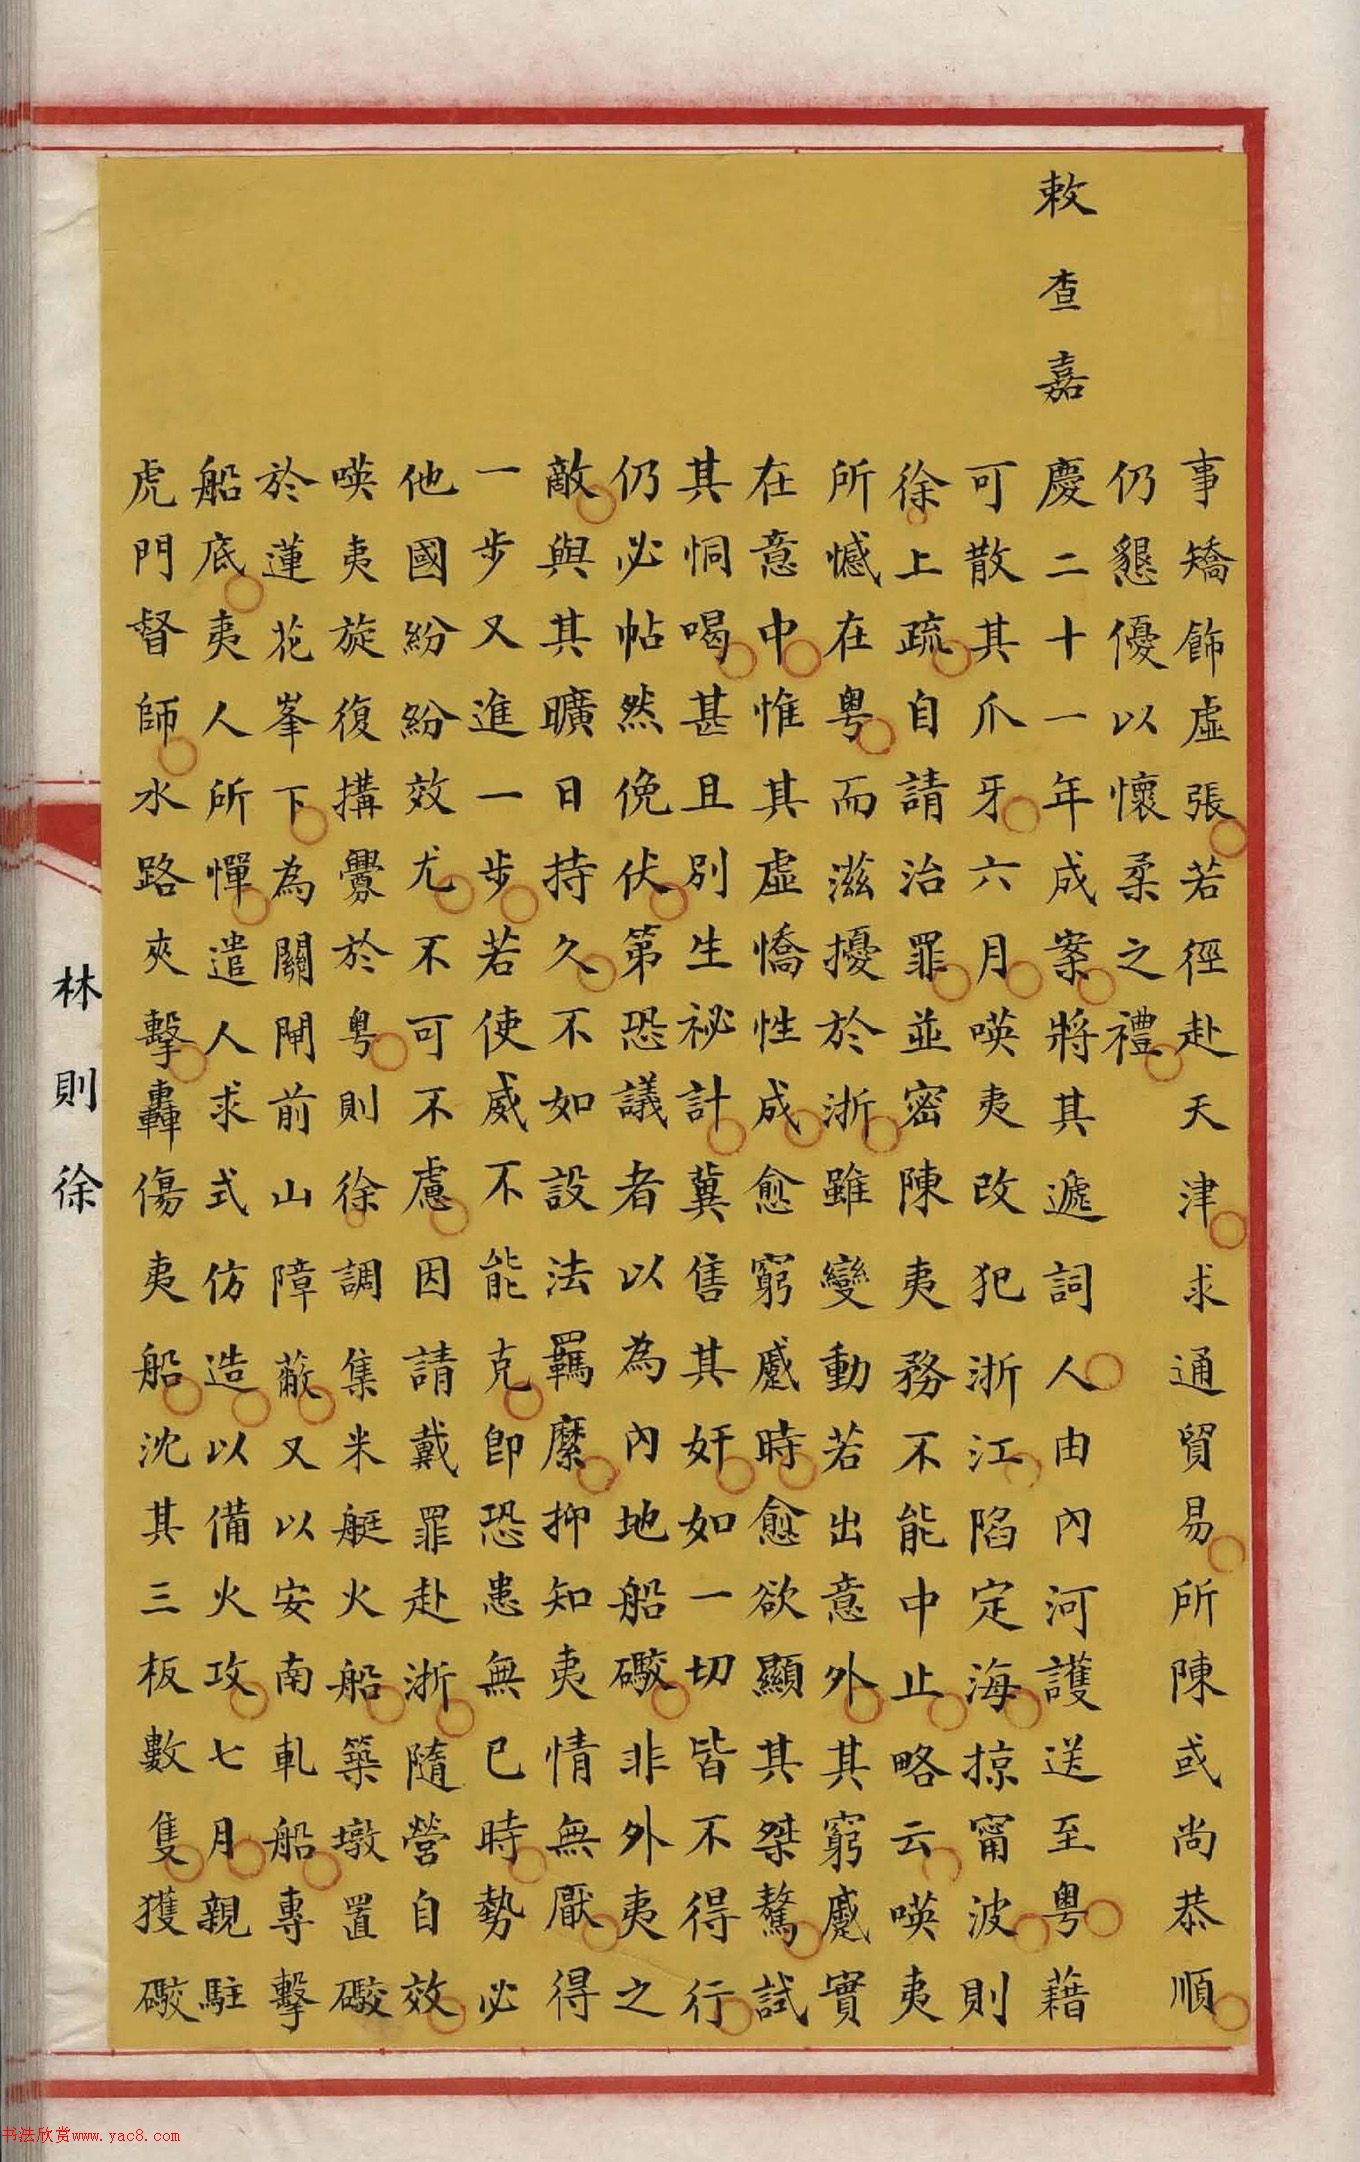 事矯飾虛張若徑赴天津求通貿易所陳或尚恭順
仍懇優以懷柔之禮
敕查嘉慶二十一年成案將其遞詞人由內河護送至粵藉
可散其爪牙六月𠸄夷改犯浙江陷定海掠甯波則
徐上疏自請治罪並密陳夷務不能中止略云𠸄夷
所憾在粵而滋擾於浙雖變動若出意外其窮蹙實
在意中惟其虛憍性成愈窮蹙時愈欲顯其桀驁試
其恫喝甚且別生祕計冀售其奸如一切皆不得行
仍必帖然俛伏第恐議者以為內地船礮非外夷之
敵與其曠日持久不如設法羈縻抑知夷情無厭得
一步又進一步若使威不能克卽恐患無已時勢必
他國紛紛效尤不可不慮因請戴罪赴浙隨營自效
𠸄夷旋復搆釁於粵則徐調集米艇火船築墩置礮
於蓮花峯下為關閘前山障蔽又以安南軋船專擊
船底夷人所憚遣人求式仿造以備火攻七月親駐
虎門督師水路夾擊轟傷夷船沈其三板數隻獲礮
林則徐
书法欣赏www.yac8.com